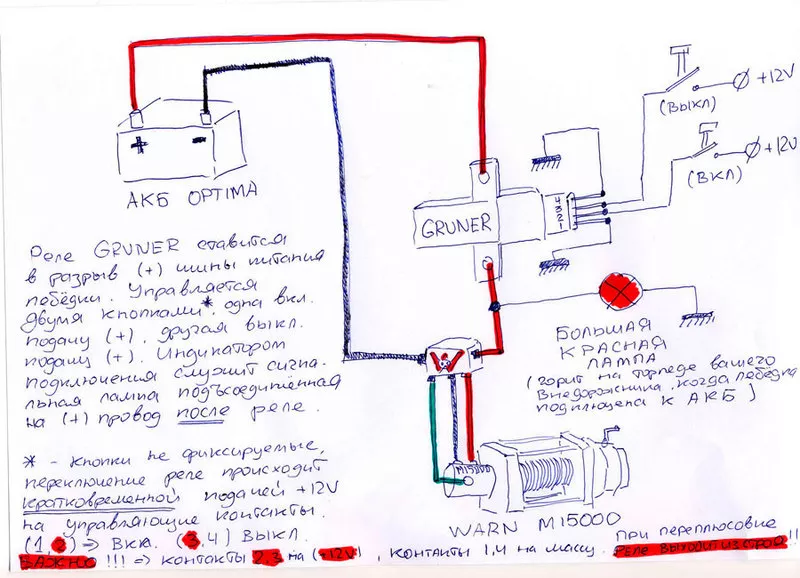 +12V
(ВЫКЛ)
+12V
(ВКЛ)
+ -
АКБ OPTIMA
GRUNER
4 3 2 1
Реле GRUNER ставится
в разрыв (+) шины питания
лебёдки. Управляется
двумя кнопками* одна вкл.
подачу (+), другая выкл.
подачу (+). Индикатором
подключения служит сигна.
льная лампа подъсоединённая
на (+) провод после реле.
БОЛЬШАЯ
КРАСНАЯ
ЛАМПА
(горит на торпеде вашего
внедорожника, когда лебёдка
подключена к АКБ)
W
M15000
WARN M15000
* - кнопки не фиксируемые,
переключение реле происходит
кратковременной подачей +12V
на управляющие контакты.
(1,2) => Вкл. (3,4) Выкл.
ВАЖНО !!! => контакты 2,3 на (+12V), контакты 1,4 на массу. При переплюсовке
реле выходит из строя!!!